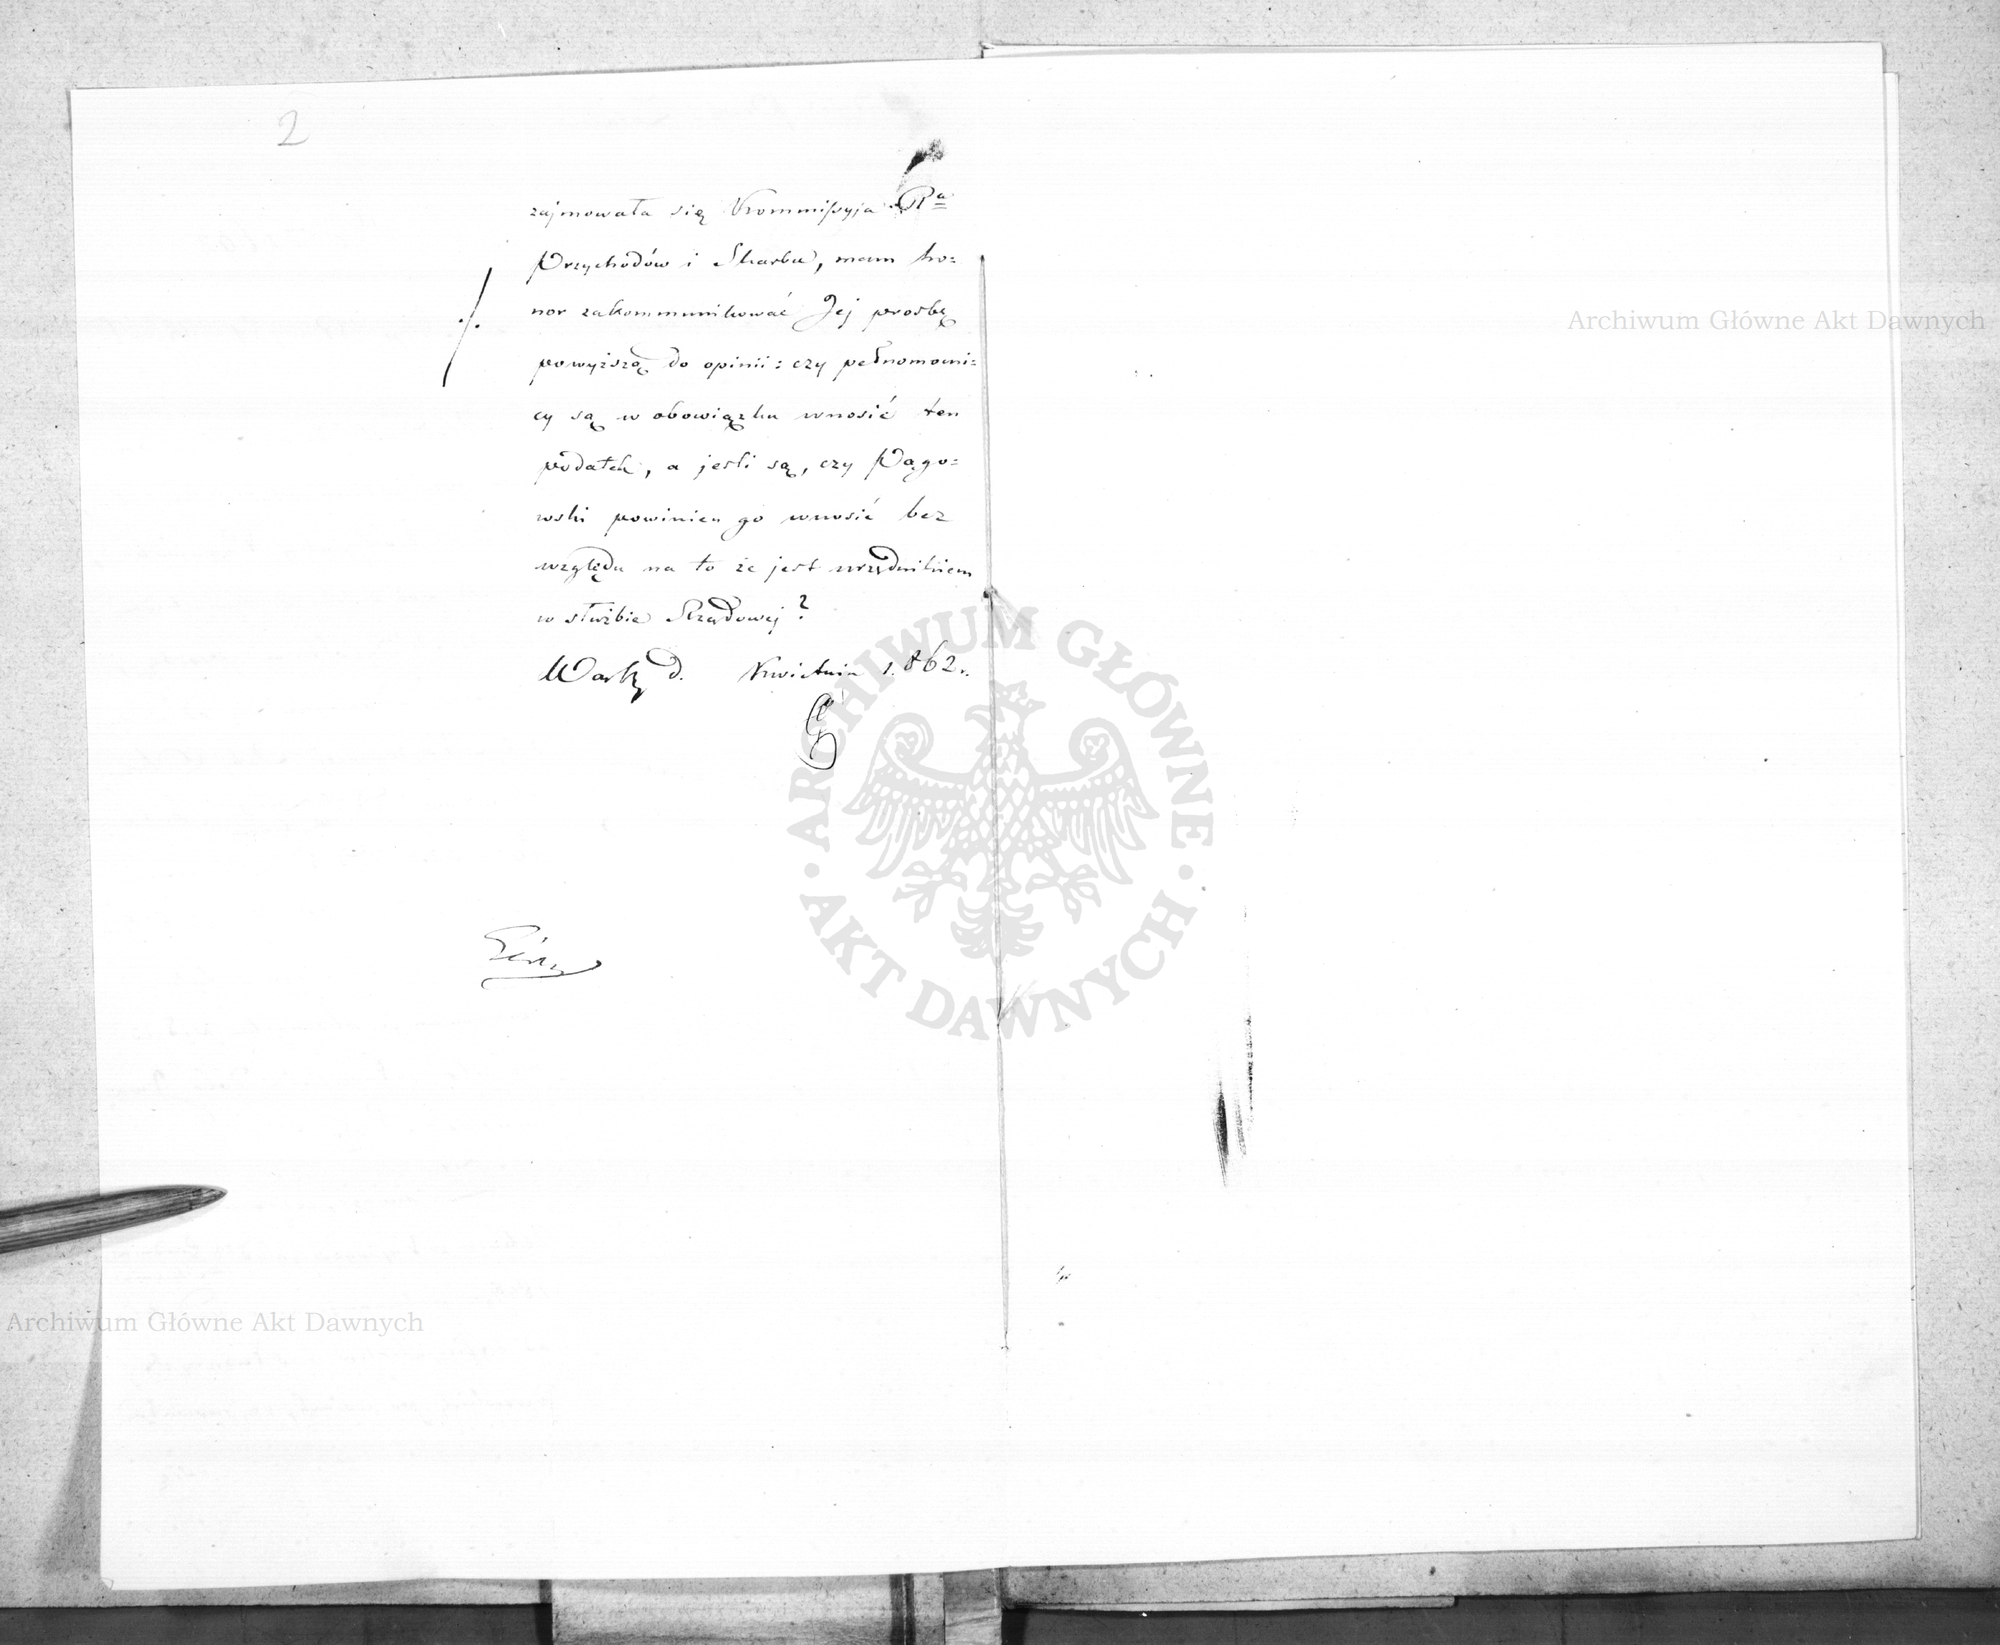 2
zajmowała się Kommissyja Ra
Przychodów i Skarbu, mam ho=
nor zakommunikować Jej prosbę
powyższą do opinii: czy pełnomocni=
cy są w obowiązku wnosić ten
podatek, a jesli są, czy Pągo=
wski powinien go wnosić bez
względu na to że jest urzędnikiem
w służbie Rządowej?
d. Kwietnia 1862 r.
ARCHIWUM GŁÓWNE AKT DAWNYCH
Archiwum Główne Akt Dawnych
Archiwum Główne Akt Dawnych